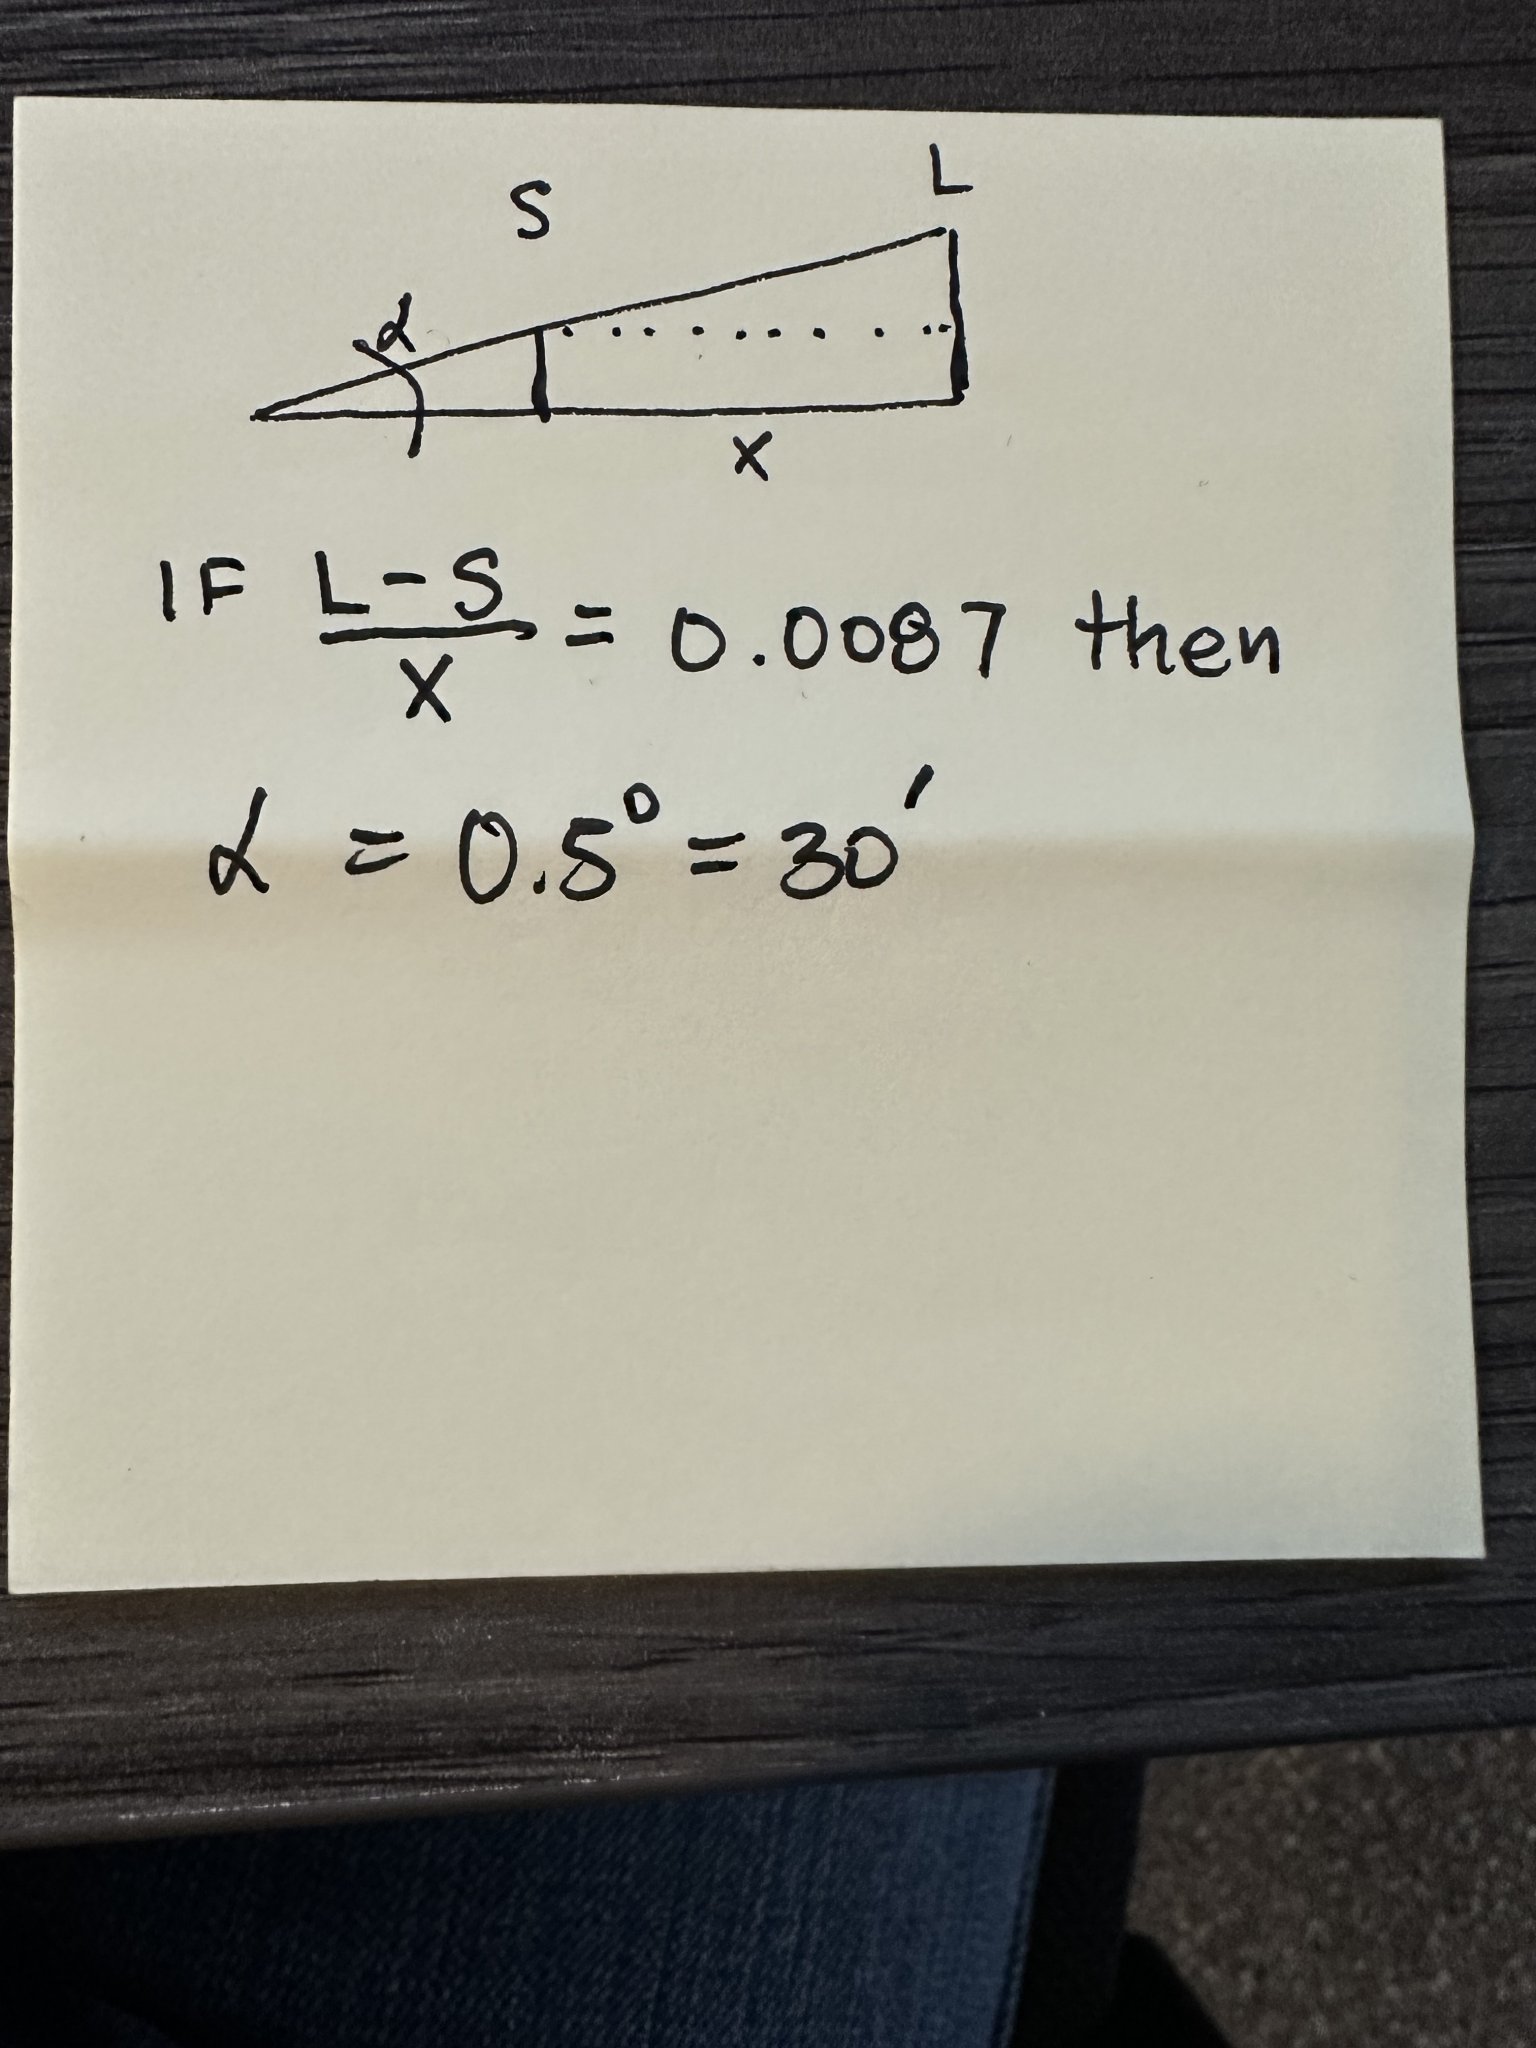 L
S
α
X
IF L-S/X = 0.0087 then
α = 0.5° = 30'